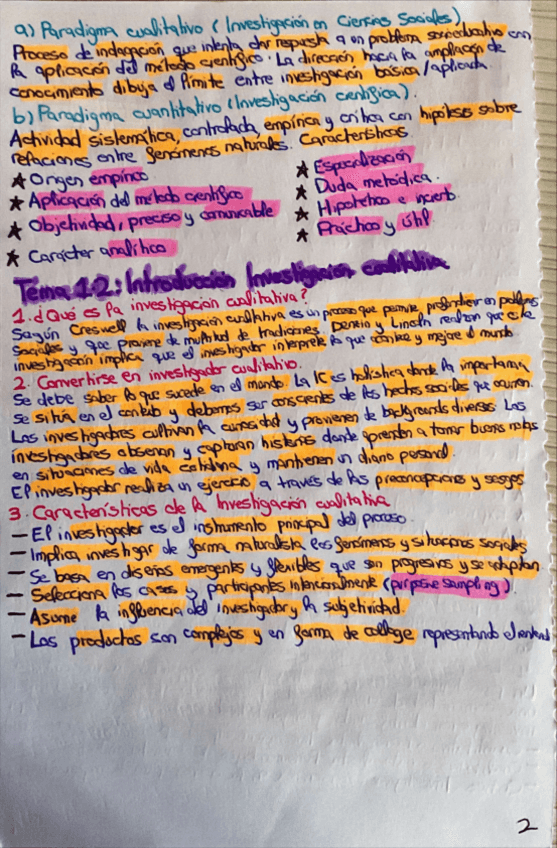 a) Paradigma cualitativo (Investigación en Ciencias Sociales)
Proceso de indagación que intenta dar respuesta a un problema socioeducativo con
la aplicación del método científico. La dirección hacia la ampliación de
conocimiento dibuja el límite entre investigación básica/aplicada.
b) Paradigma cuantitativo (Investigación científica).
Actividad sistemática, controlada, empírica y crítica con hipótesis sobre
relaciones entre fenómenos naturales. Características
★ Origen empírico.
★ Aplicación del método científico
★ Objetividad, preciso y comunicable
★ Carácter analítico
★ Especialización
★ Duda metódica.
★ Hipotético e incert.
★ Práctico y útil
Tema 1.2: Introducción Investigación cualitativa
1. ¿Qué es la investigación cualitativa?
Según Creswell la investigación cualitativa es un proceso que permite profundizar en problemas
sociales y que proviene de multitud de tradiciones. Denzin y Lincoln realzan que este
investigación implica que el investigador interprete lo que conlleva y mejore el mundo
2. Convertirse en investigador cualitativo.
Se debe saber lo que sucede en el mundo. La IC es holística donde la importancia
se sitúa en el contexto y debemos ser conscientes de los hechos sociales que ocurren.
Los investigadores cultivan la curiosidad y provienen de backgrounds diversos Los
investigadores observan y capturan historias donde aprenden a tomar buenas notas
en situaciones de vida cotidiana y mantienen un diario personal.
El investigador realiza un ejercicio a través de las preconcepciones y sesgos
3. Características de la Investigación cualitativa
- El investigador es el instrumento principal del proceso.
- Implica investigar de forma naturalista los fenómenos y situaciones sociales
- Se basa en diseños emergentes y flexibles que son progresivos y se adaptan.
- Selecciona los casos y participantes intencionalmente (purposive sampling).
- Asume la influencia del investigador y la subjetividad.
- Los productos son complejos y en forma de collage representando el
2